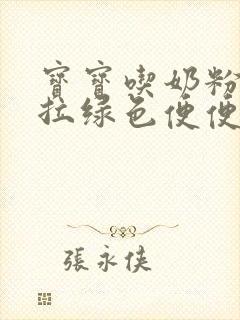 寶寶喫奶粉
拉綠色便便
張永俠